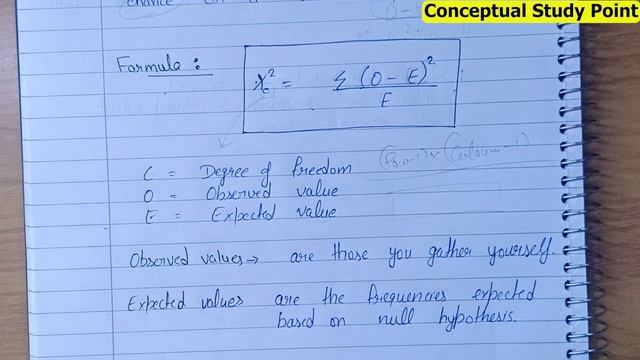 Conceptual Study Point
chance on a
Formula :
χc² = Σ (O - E)² / E
C = Degree of freedom (Row-1) x (Coloum-1)
O = Observed value
E = Expected value
Observed values → are those you gather yourself.
Expected values are the frequencies expected
based on null hypothesis.